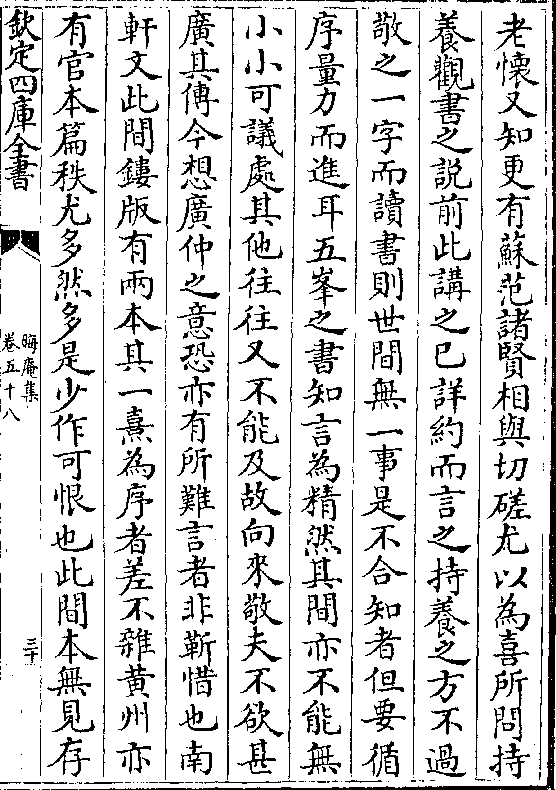 老懷又知更有蘇范諸賢相與切磋尤以為喜所問持
養觀書之説前此講之已詳約而言之持養之方不過
敬之一字而讀書則世間無一事是不合知者但要循
序量力而進耳五峯之書知言為精然其間亦不能無
小小可議處其他往往又不能及故向來敬夫不欲甚
廣其傳今想廣仲之意恐亦有所難言者非靳惜也南
軒文此間鏤版有兩本其一熹為序者差不雜黄州亦
有官本篇秩尤多然多是少作可恨也此間本無見存
欽定四庫全書
晦庵集
卷五十八
三十